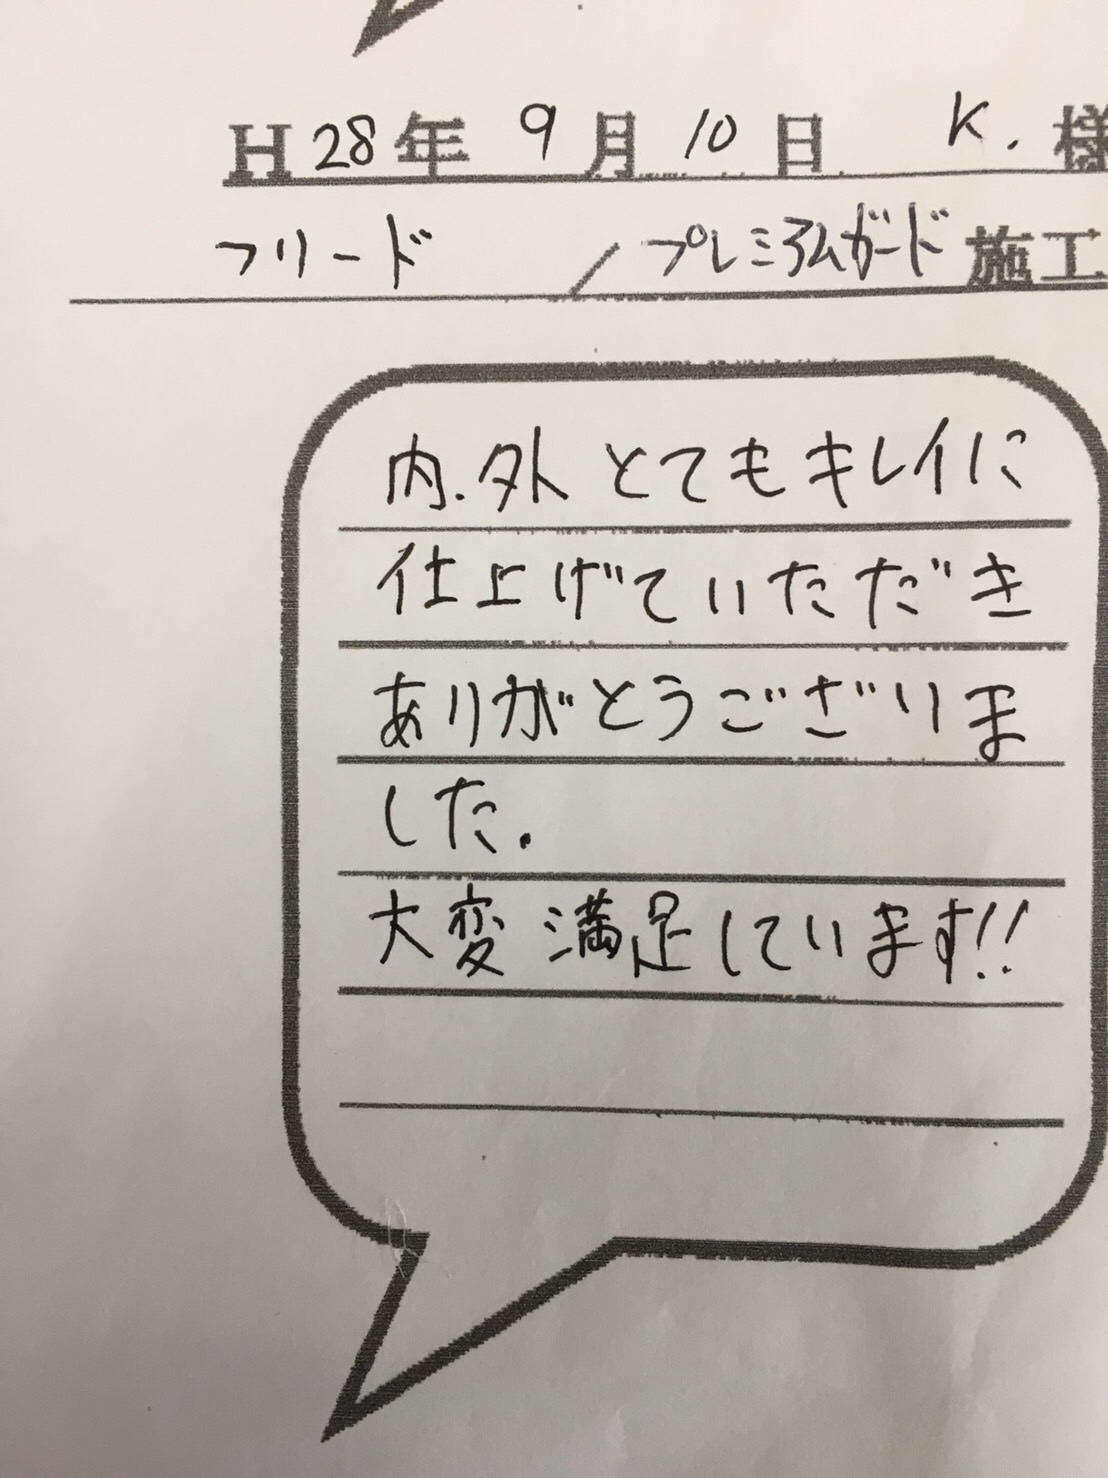 H 28 年 9 月 10 日 K. 様
フリード / プレミアムガード 施工
内.外 とてもキレイに
仕上げていただき
ありがとうございま
した.
大変 満足しています!!